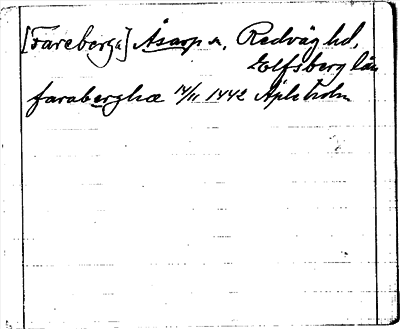 [Fareberga] Åsarp sn, Redväg hd,
Elfsborg län
faraberghæ 14/11 1442 Äpleholm